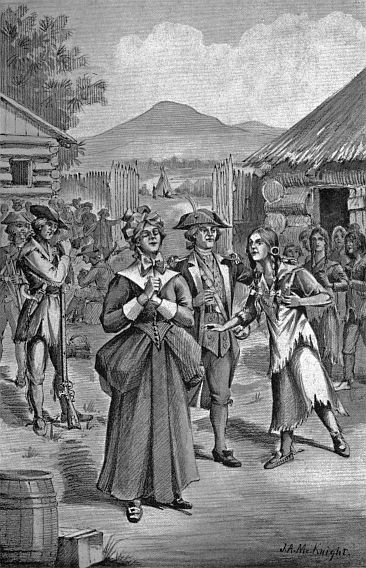 J.A. McKnight.